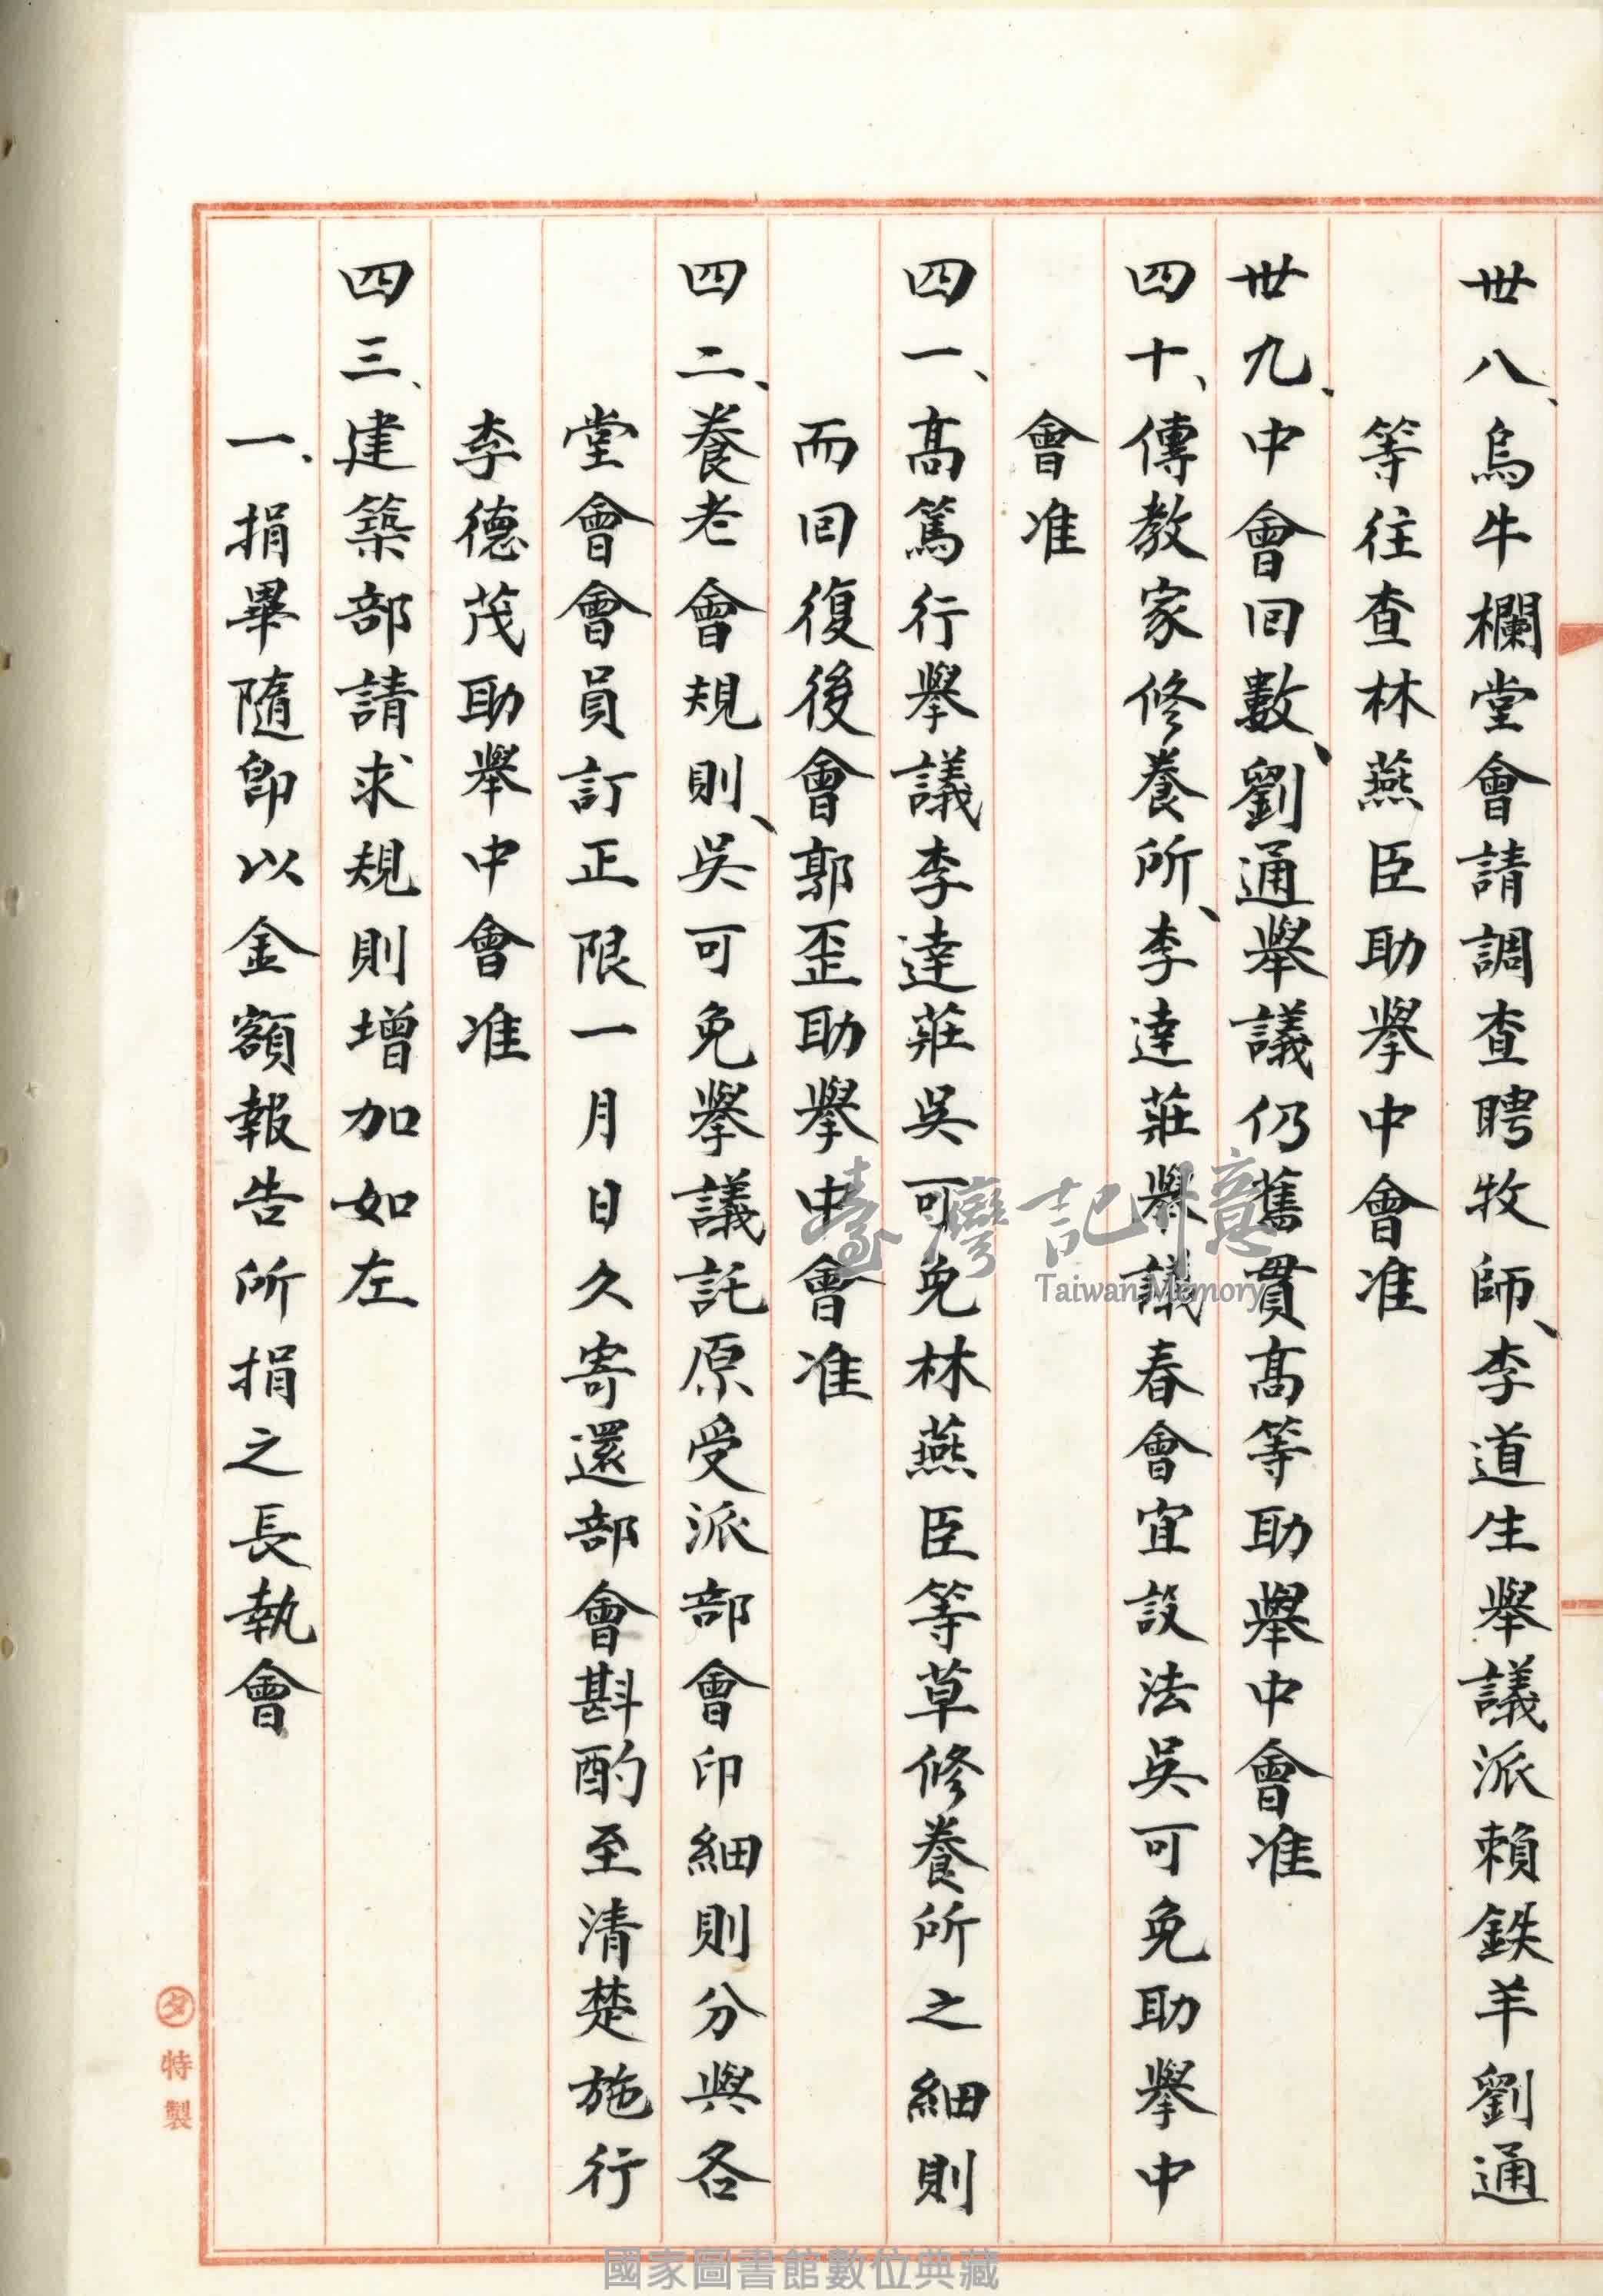 卅八、烏牛欄堂會請調查聘牧師、李道生舉議派賴鉄羊劉通
等往查林燕臣助舉中會准
卅九、中會回數、劉通舉議仍舊貫高等助舉中會准
四十、傳教家修養所、李達莊舉議春會宜設法吳可免助舉中
會准
四一、高篤行舉議李達莊吳可免林燕臣等草修養所之細則
而回復後會郭歪助舉中會准
四二、養老會規則、吳可免舉議託原受派部會印細則分與各
堂會會員訂正限一月日久寄還部會斟酌至清楚施行
李德茂助舉中會准
四三、建築部請求規則增加如左
一、捐畢隨即以金額報告所捐之長執會
特製
臺灣記憶
Taiwan Memory
國家圖書館數位典藏